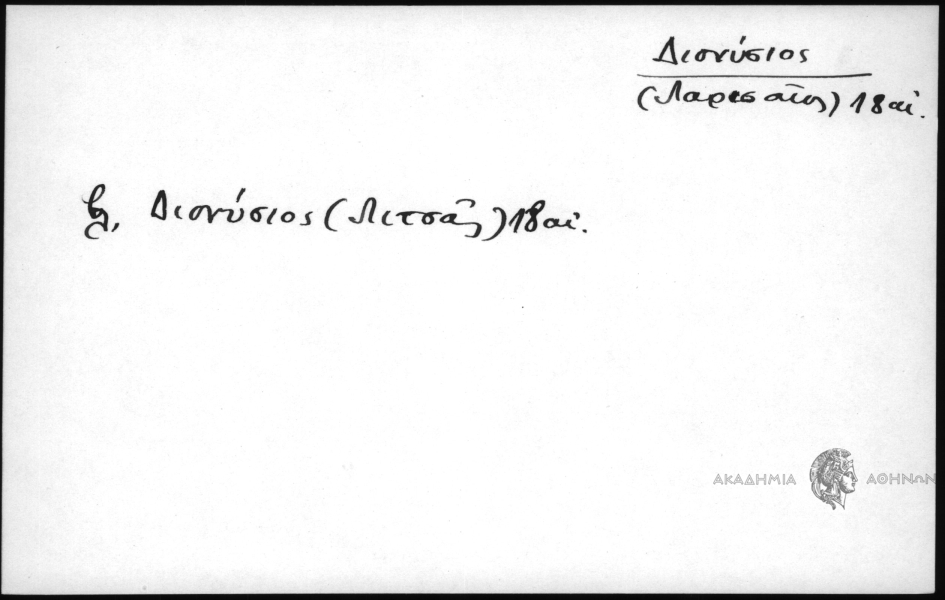 Διονύσιος
(Λαρισαῖος) 18 αἰ.
βλ, Διονύσιος (Λιτσᾶς) 18 αἰ.
ΑΚΑΔΗΜΙΑ ΑΘΗΝΩΝ